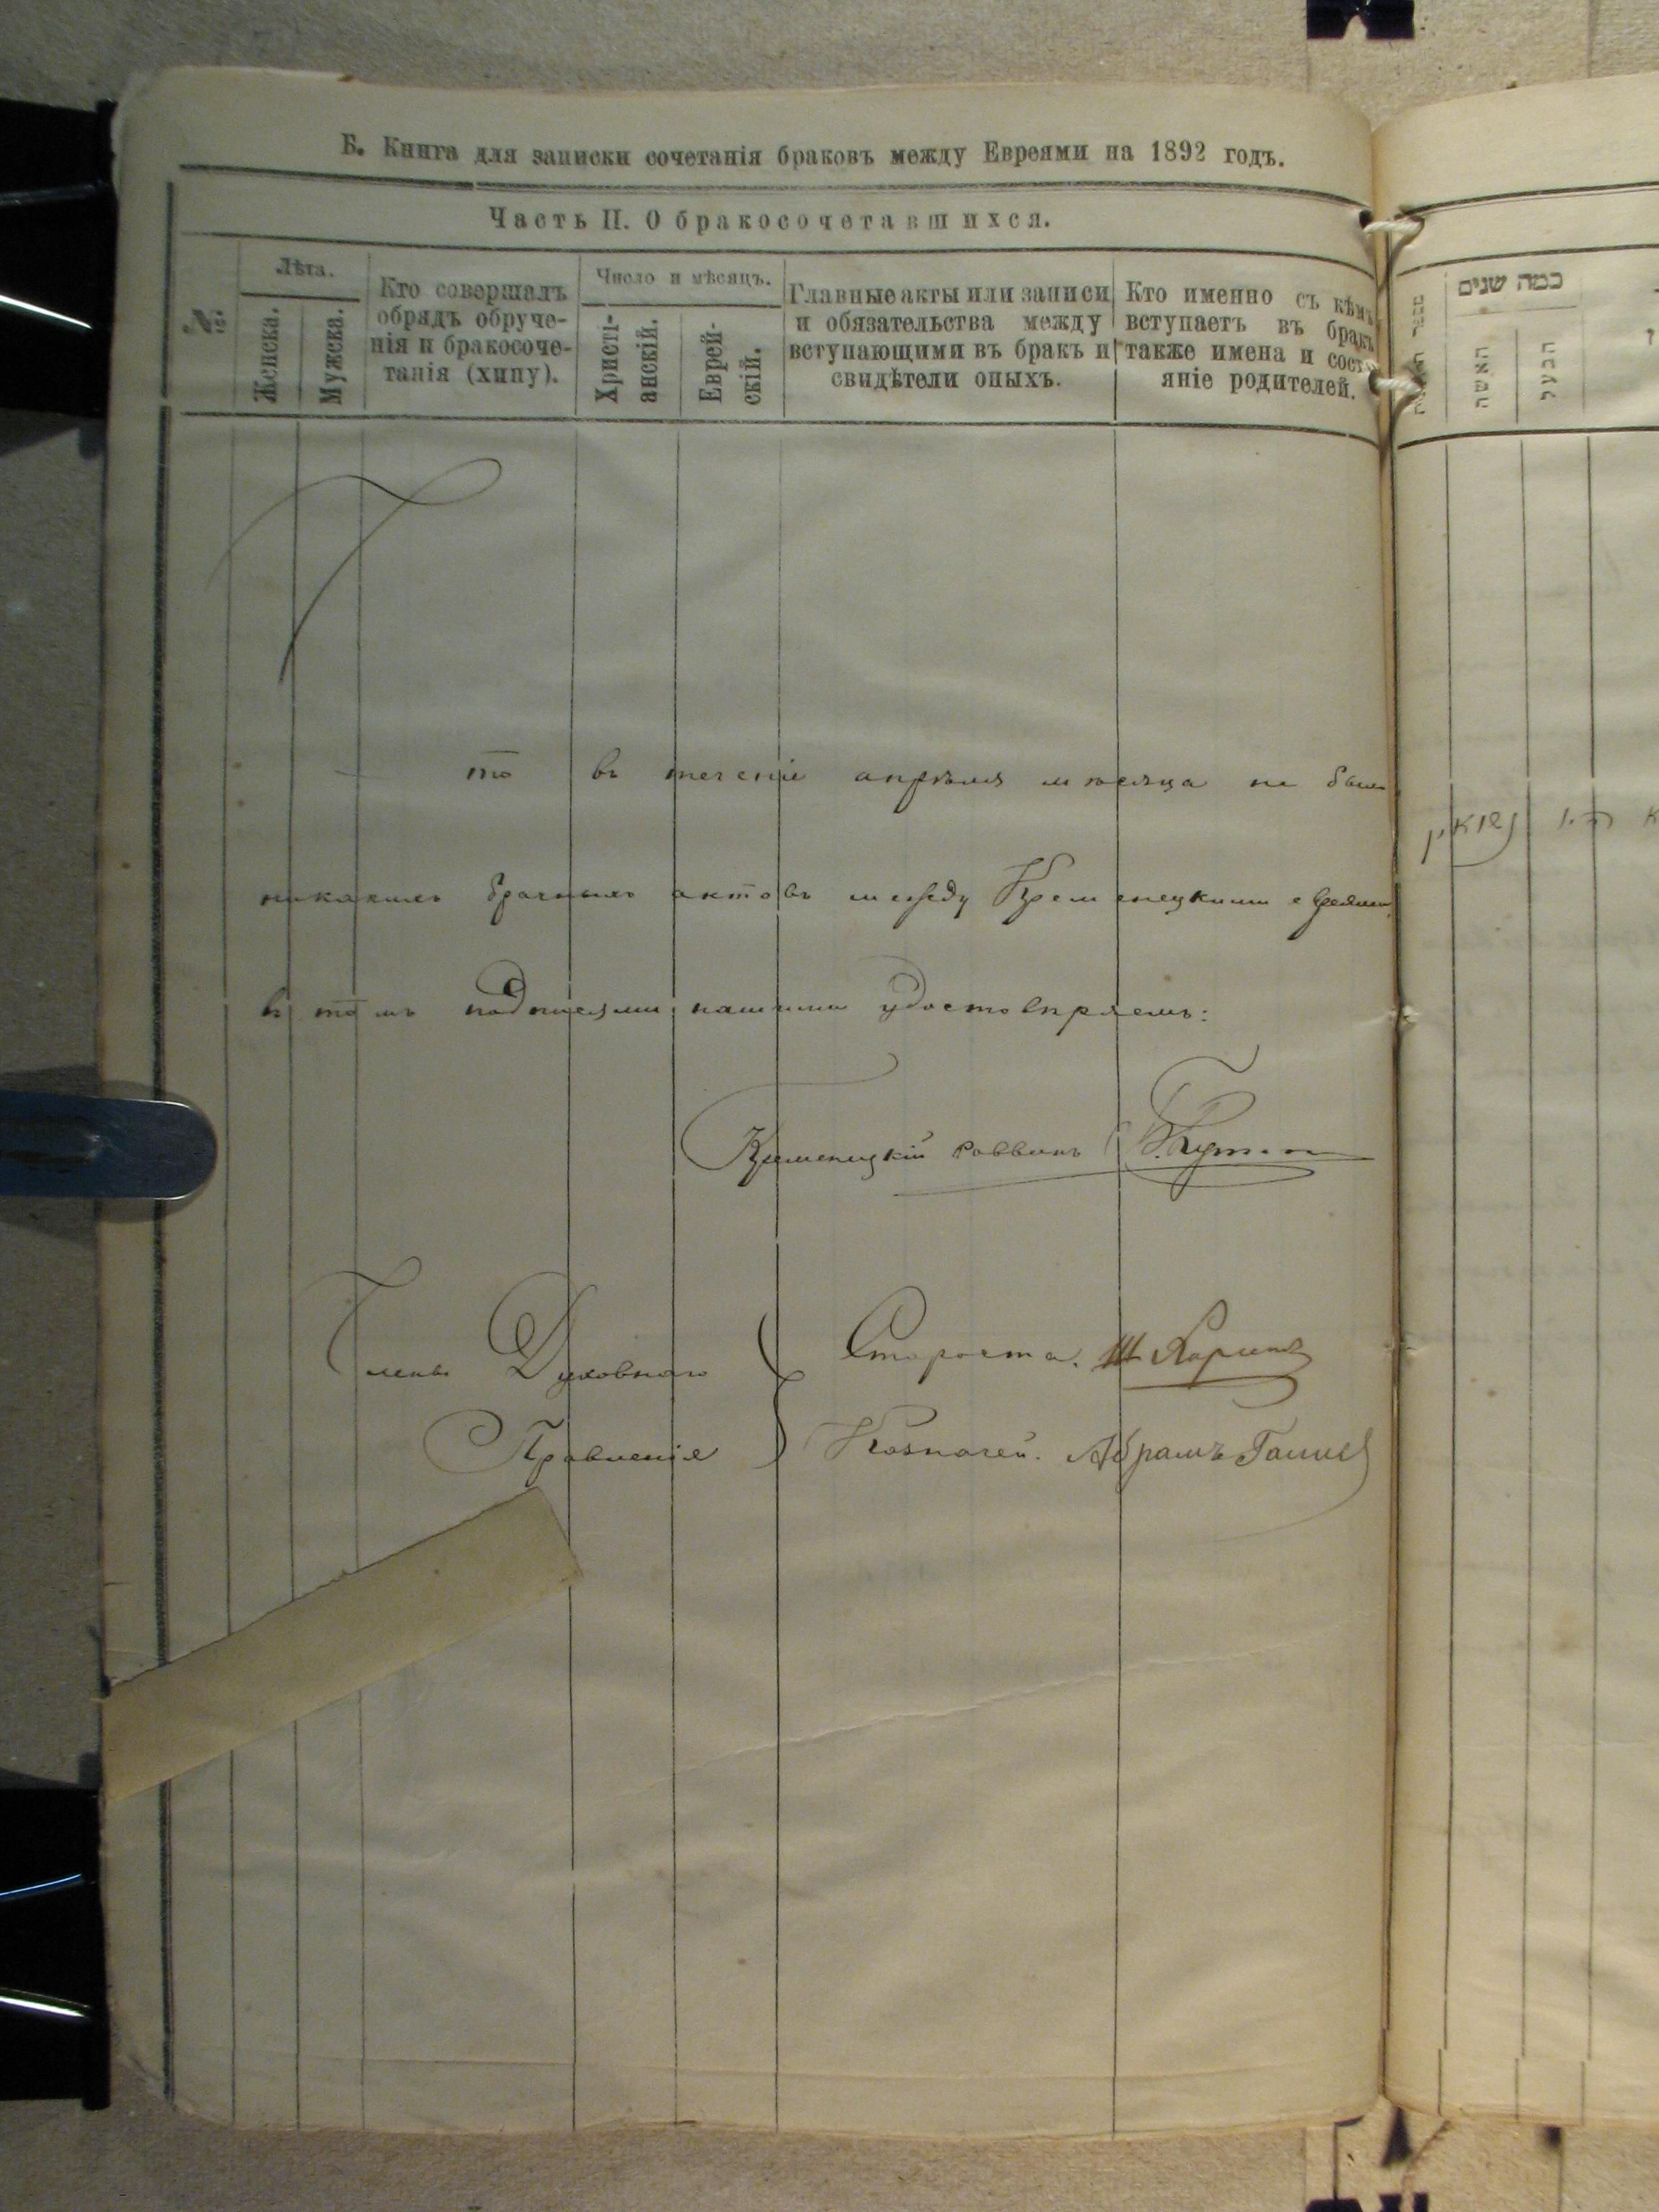 Б. Книга для записки сочетанія браковъ между Евреями на 1892 годъ.
Часть II. О бракосочетавшихся.
№
Лѣта.
Женска.
Мужска.
Кто совершалъ
обрядъ обруче-
нія и бракосоче-
танія (хипу).
Число и мѣсяцъ.
Христі-
анскій.
Еврей-
скій.
Главные акты или записи
и обязательства между
вступающими въ бракъ и
свидѣтели оныхъ.
Кто именно съ кѣмъ
вступаетъ въ бракъ
также имена и состо
яніе родителей.
что въ теченіе апрѣля мѣсяца не было
никакихъ брачныхъ актовъ между Кременецкими евреями,
въ томъ подписями нашими удостовѣряемъ:
Кременецкій раввинъ
Члены Духовнаго
Правленія
Староста. Ш
Казначей. Абрамъ
כמה שנים
האשה
הבעל
נשואין היו